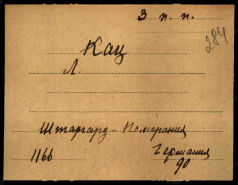 З п. п.
284
Кац
Л.
Штаргард - Померания
1166 Германия
90